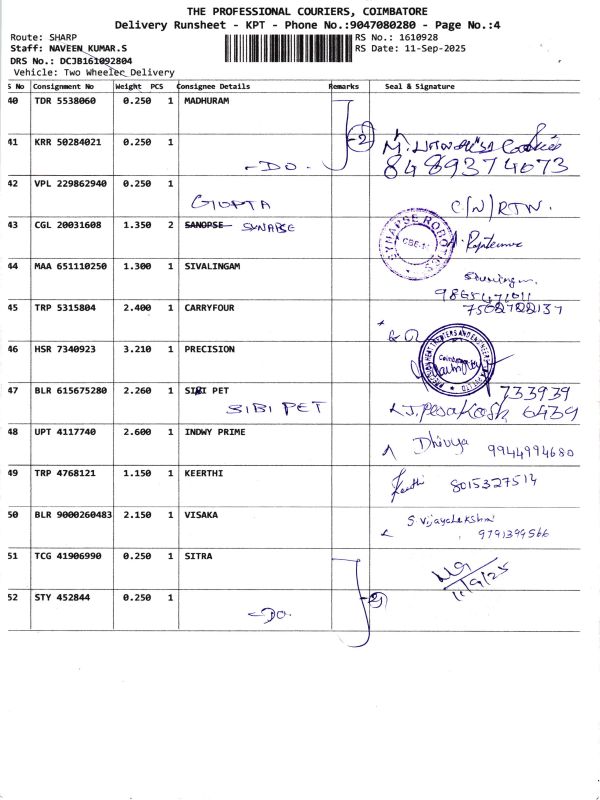 THE PROFESSIONAL COURIERS, COIMBATORE
Delivery Runsheet - KPT - Phone No.:9047080280 - Page No.:4
Route: SHARP
RS No.: 1610928
Staff: NAVEEN KUMAR.S
RS Date: 11-Sep-2025
DRS No.: DCJB161092804
Vehicle: Two Wheeler Delivery
S No Consignment No Weight PCS Consignee Details Remarks Seal & Signature
40 TDR 5538060 0.250 1 MADHURAM
41 KRR 50284021 0.250 1 -DO. 2 Cookies
8489374073
42 VPL 229862940 0.250 1
GUPTA C/N/RTN.
43 CGL 20031608 1.350 2 SANOPSE SYNAPSE SYNAPSE ROBOTICS
44 MAA 651110250 1.300 1 SIVALINGAM
9865471011
45 TRP 5315804 2.400 1 CARRYFOUR
46 HSR 7340923 3.210 1 PRECISION Coimbatore
47 BLR 615675280 2.260 1 SIBI PET 733939
SIBI PET 6439
48 UPT 4117740 2.600 1 INDWY PRIME Dhivya 9944994680
49 TRP 4768121 1.150 1 KEERTHI Keerthi 8015327514
50 BLR 9000260483 2.150 1 VISAKA S. Vijayalakshmi
9791399566
51 TCG 41906990 0.250 1 SITRA
11/9/25
52 STY 452844 0.250 1 2
-DO.